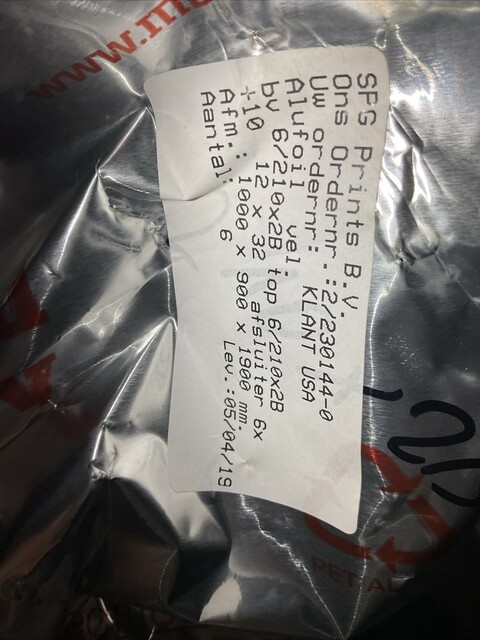 SPG Prints B.V.
Ons Ordernr.:2/230144-0
Uw ordernr: KLANT USA
Alufoil vel:
bv 6/210x2B top 6/210x2B
+10 12 x 32 afsluiter 6x
Afm.: 1000 x 900 x 1900 mm.
Aantal: 6 Lev.:05/04/19
www.
PET-AL